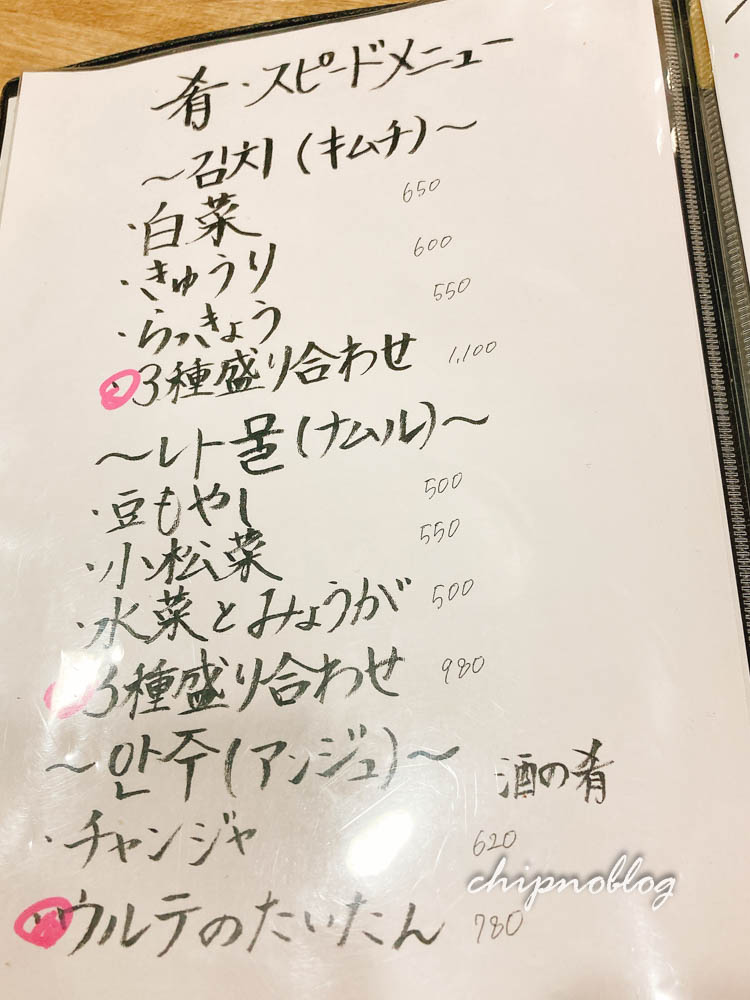 肴・スピードメニュー
～김치(キムチ)～
・白菜 650
・きゅうり 600
・らっきょう 550
・3種盛り合わせ 1,100
～나물(ナムル)～
・豆もやし 500
・小松菜 550
・水菜とみょうが 500
・3種盛り合わせ 980
～안주(アンジュ)～ 酒の肴
・チャンジャ 620
・ウルテのたいたん 780
chipnoblog